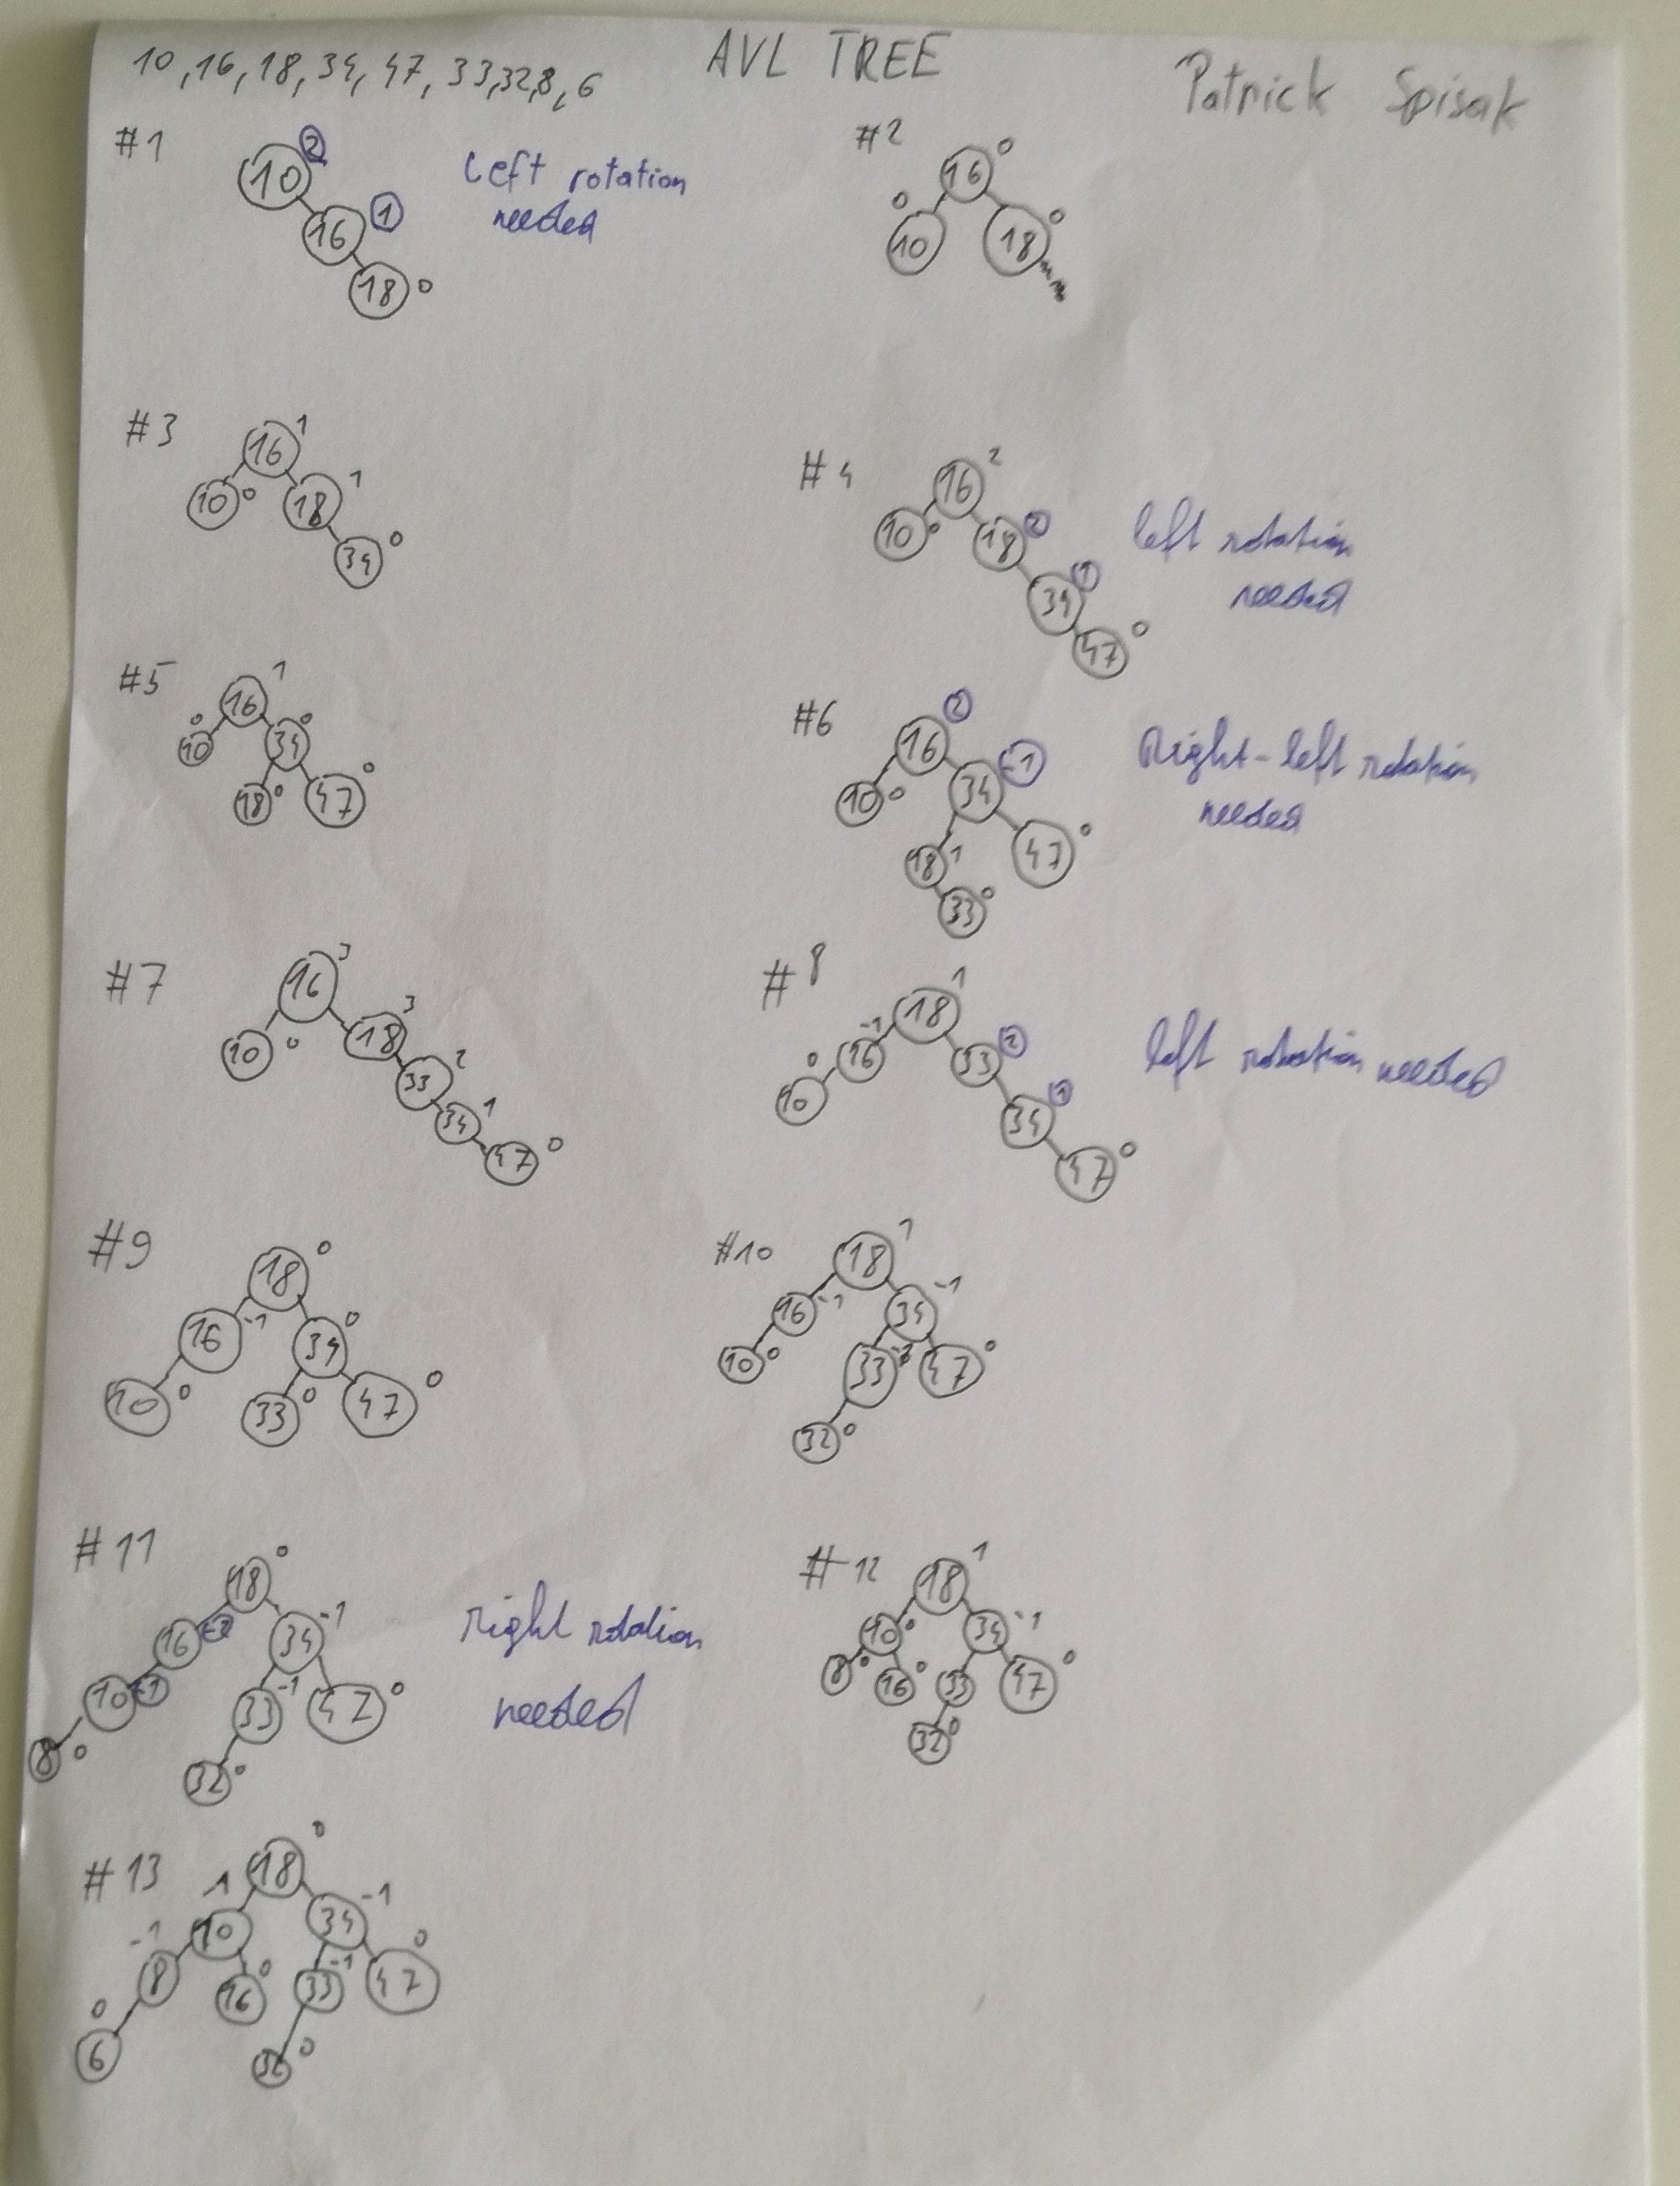 10,16,18,34,47,33,32,8,6
AVL TREE
Patrick Spisak
#1
10 2
16 1
18 0
Left rotation
needed
#2
16 0
0 10
18 0
#3
16 1
10 0
18 1
34 0
#4
16 2
10 0
18 2
34 1
47 0
left rotation
needed
#5
16 1
0 10
34 0
18 0
47 0
#6
16 2
10 0
34 -1
18 1
47 0
33 0
Right-left rotation
needed
#7
16 3
10 0
18 3
33 2
34 1
47 0
#8
18 1
-1 16
33 2
0 10
34 1
47 0
left rotation needed
#9
18 0
16 -1
34 0
10 0
33 0
47 0
#10
18 1
16 -1
34 -1
10 0
33
47 0
32 0
#11
18 0
16 -2
34 -1
10 -1
33 -1
47 0
8 0
32 0
right rotation
needed
#12
18 1
10 0
34 -1
8 0
16 0
33
47 0
32 0
#13
18 0
-1 10
34 -1
-1 8
16 0
33 -1
47 0
0 6
0